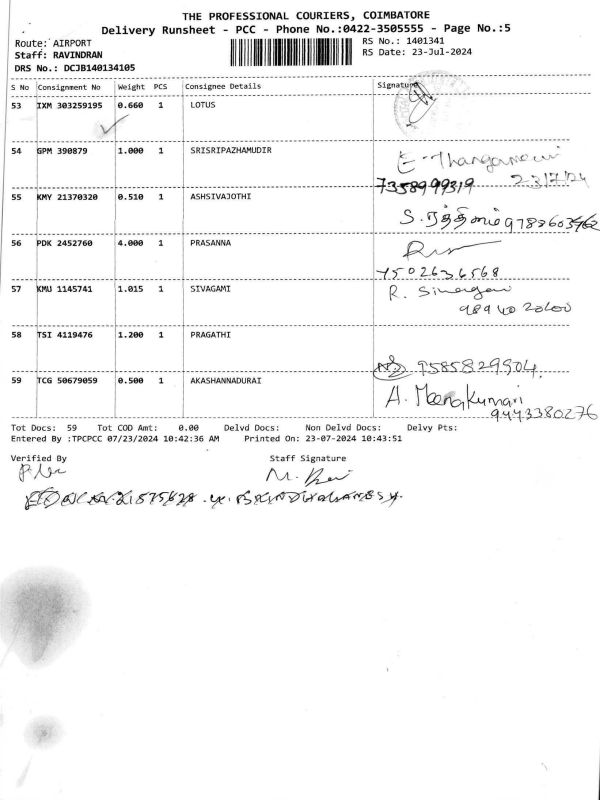 THE PROFESSIONAL COURIERS, COIMBATORE
Delivery Runsheet - PCC - Phone No.:0422-3505555 - Page No.:5
Route: AIRPORT
RS No.: 1401341
Staff: RAVINDRAN
RS Date: 23-Jul-2024
DRS No.: DCJB140134105
S No Consignment No Weight PCS Consignee Details Signature
53 IXM 303259195 0.660 1 LOTUS
54 GPM 390879 1.000 1 SRISRIPAZHAMUDIR
23/7/24
7358999319
55 KMY 21370320 0.510 1 ASHSIVAJOTHI
56 PDK 2452760 4.000 1 PRASANNA
7502636568
57 KMU 1145741 1.015 1 SIVAGAMI R.
58 TSI 4119476 1.200 1 PRAGATHI
9585829504.
59 TCG 50679059 0.500 1 AKASHANNADURAI A.
9443380276
Tot Docs: 59 Tot COD Amt: 0.00 Delvd Docs: Non Delvd Docs: Delvy Pts:
Entered By :TPCPCC 07/23/2024 10:42:36 AM Printed On: 23-07-2024 10:43:51
Verified By Staff Signature